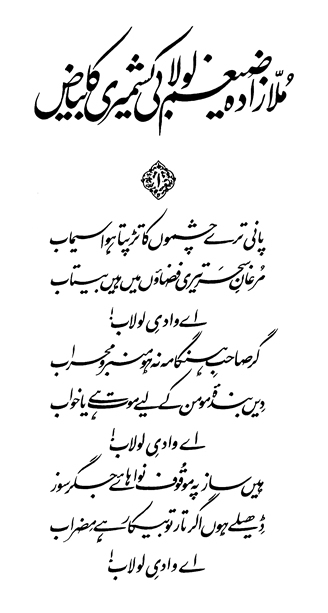 مُلّا زادہ ضیغم لولابی کشمیری کا بیاض
۱
پانی ترے چشموں کا تڑپتا ہوا سیماب
مرغانِ سحر تیری فضاؤں میں ہیں بیتاب
اے وادیِ لولاب!
گر صاحبِ ہنگامہ نہ ہو منبر و محراب
دیں بندۂ مومن کے لیے موت ہے یا خواب
اے وادیِ لولاب!
ہیں ساز پہ موقُوف نوا ہائے جگر سوز
ڈھیلے ہوں اگر تار تو بیکار ہے مِضراب
اے وادیِ لولاب!